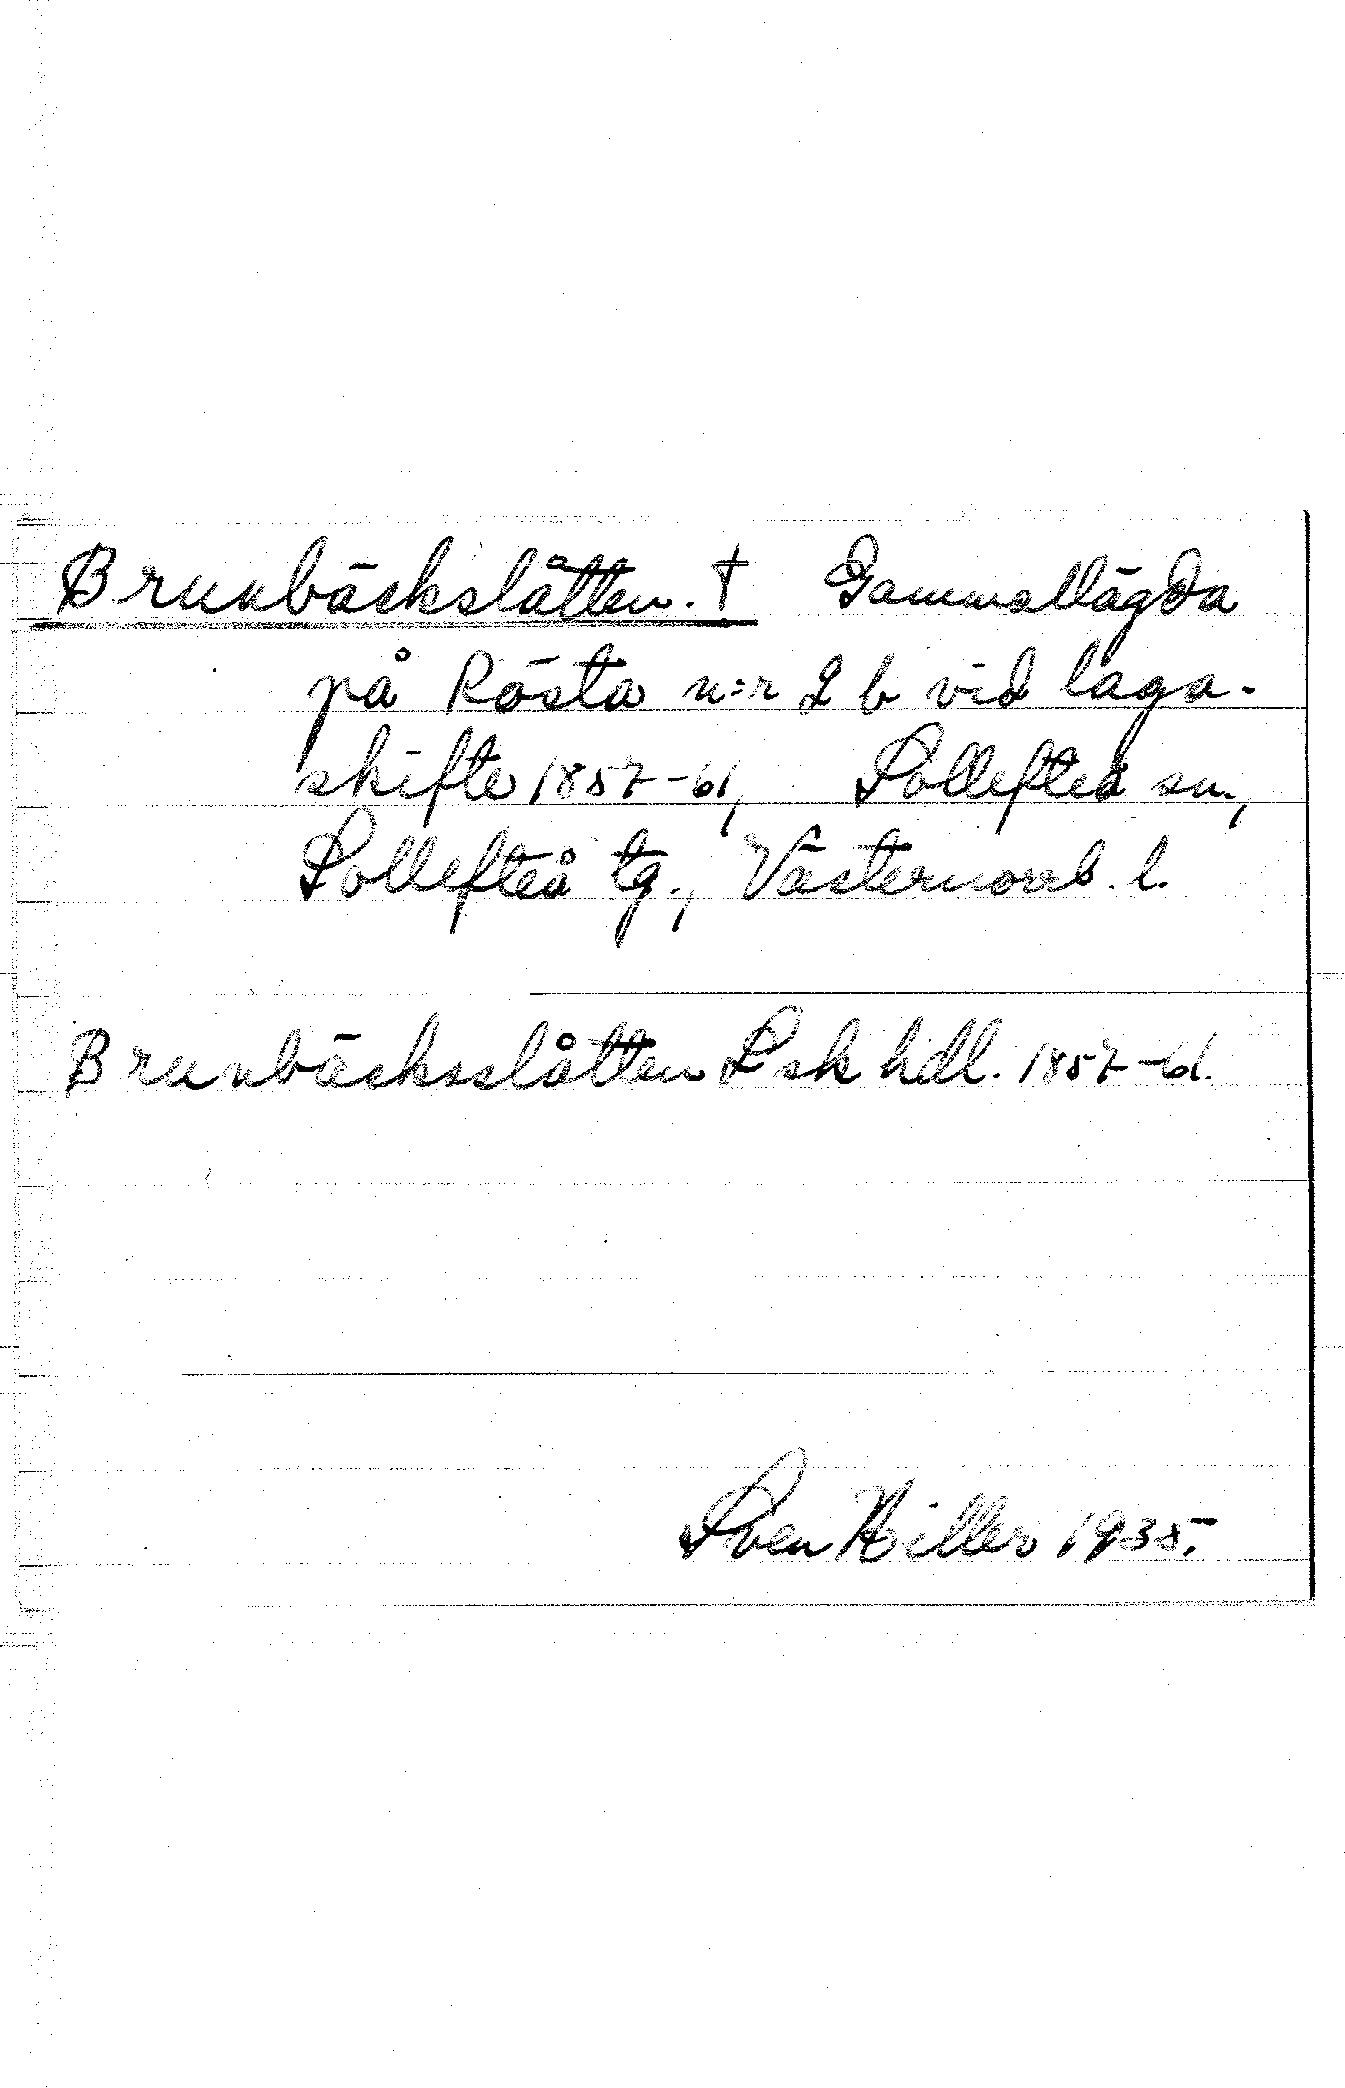 Brunbäckslåtten. † Gammallägda
på Rösta n:r 2 b vid laga-
skifte 1857-61, Sollefteå sn.,
Sollefteå tg., Västernorrl. l.
Brunbäcksslåtten Lsk hdl. 1857-61.
Sven Hiller 1935.